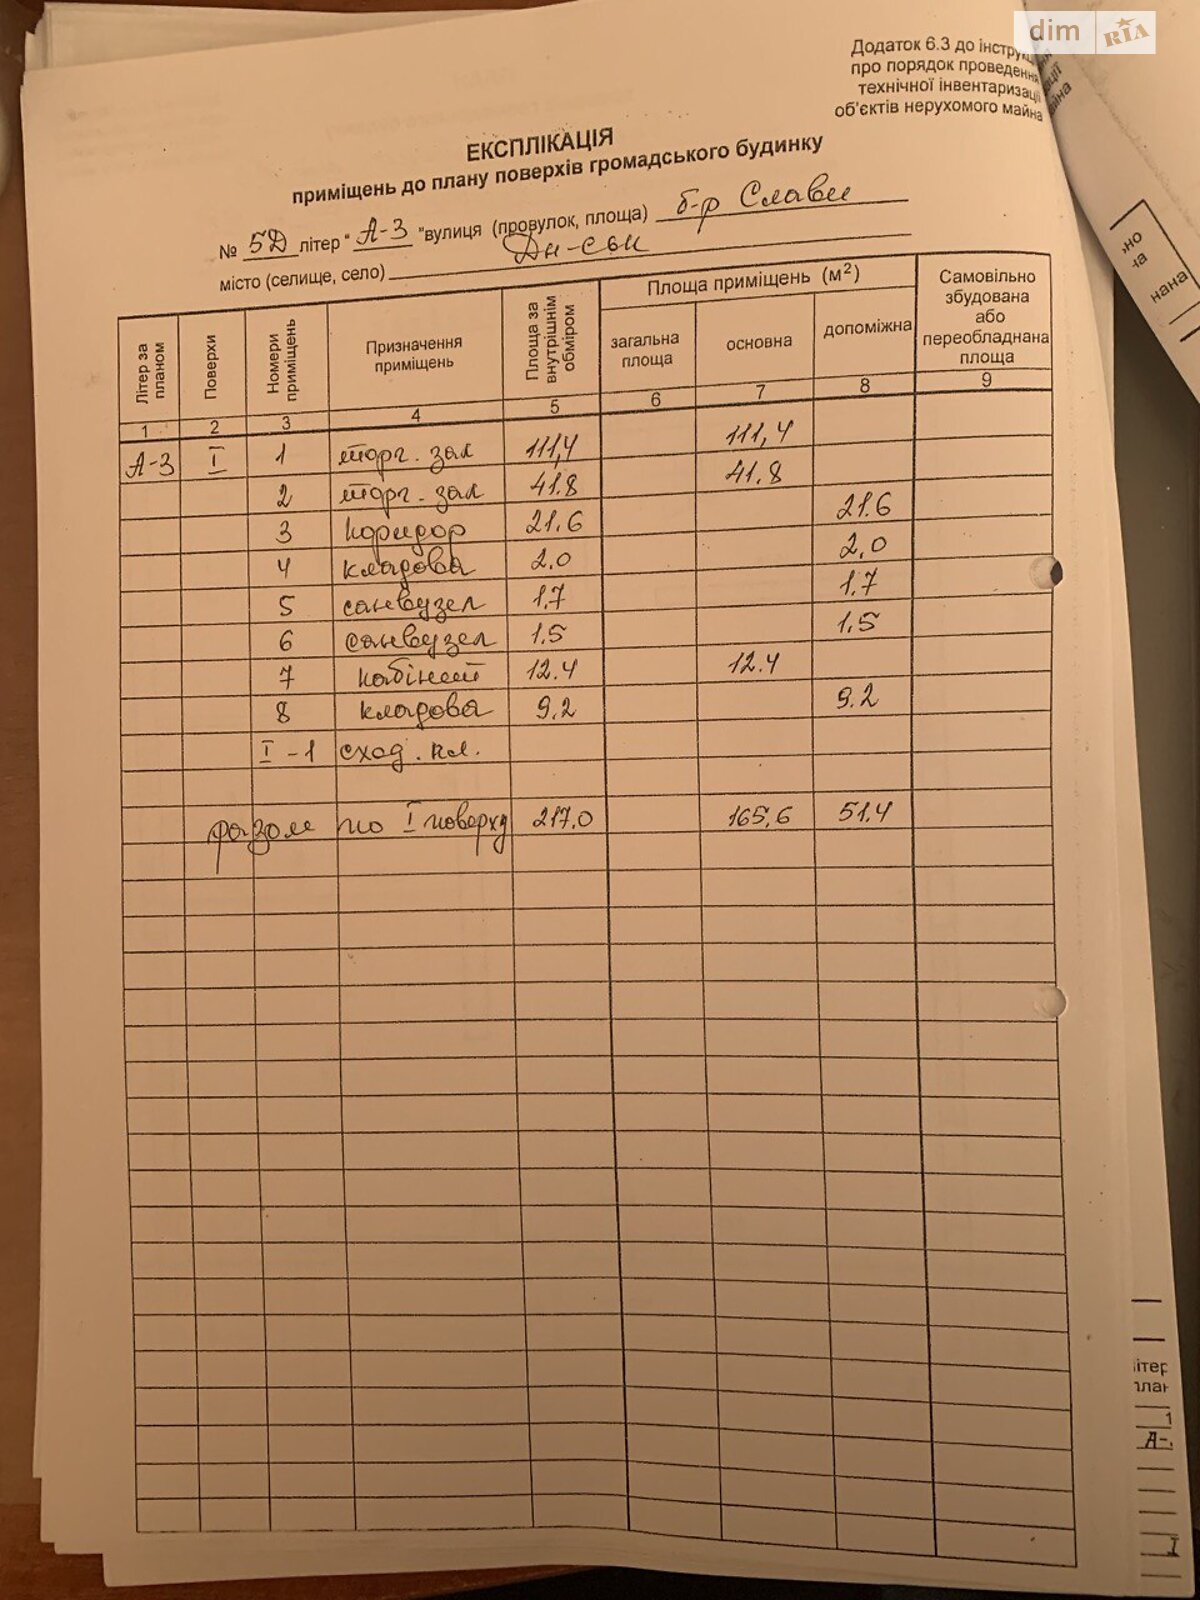 dim RIA
Додаток 6.3 до інструкц
про порядок проведення
технічної інвентаризаці
об'єктів нерухомого майна
ЕКСПЛІКАЦІЯ
приміщень до плану поверхів громадського будинку
№ 5Д літер " А-3 "вулиця (провулок, площа) б-р Слави
місто (селище, село) Дн-ськ
Літер за планом Поверхи Номери приміщень Призначення приміщень Площа за внутрішнім обміром Площа приміщень (м²) Самовільно збудована або переобладнана площа
загальна площа основна допоміжна
1 2 3 4 5 6 7 8 9
А-3 I 1 торг. зал 111,4 111,4
2 торг. зал 41.8 41.8
3 коридор 21.6 21.6
4 кладова 2,0 2,0
5 санвузел 1,7 1.7
6 санвузел 1.5 1.5
7 кабінет 12.4 12.4
8 кладова 9.2 9.2
I-1 сход. кл.
разом по I поверху 217.0 165,6 51.4
ьно
на
нана
ітер
план
1
А-
I